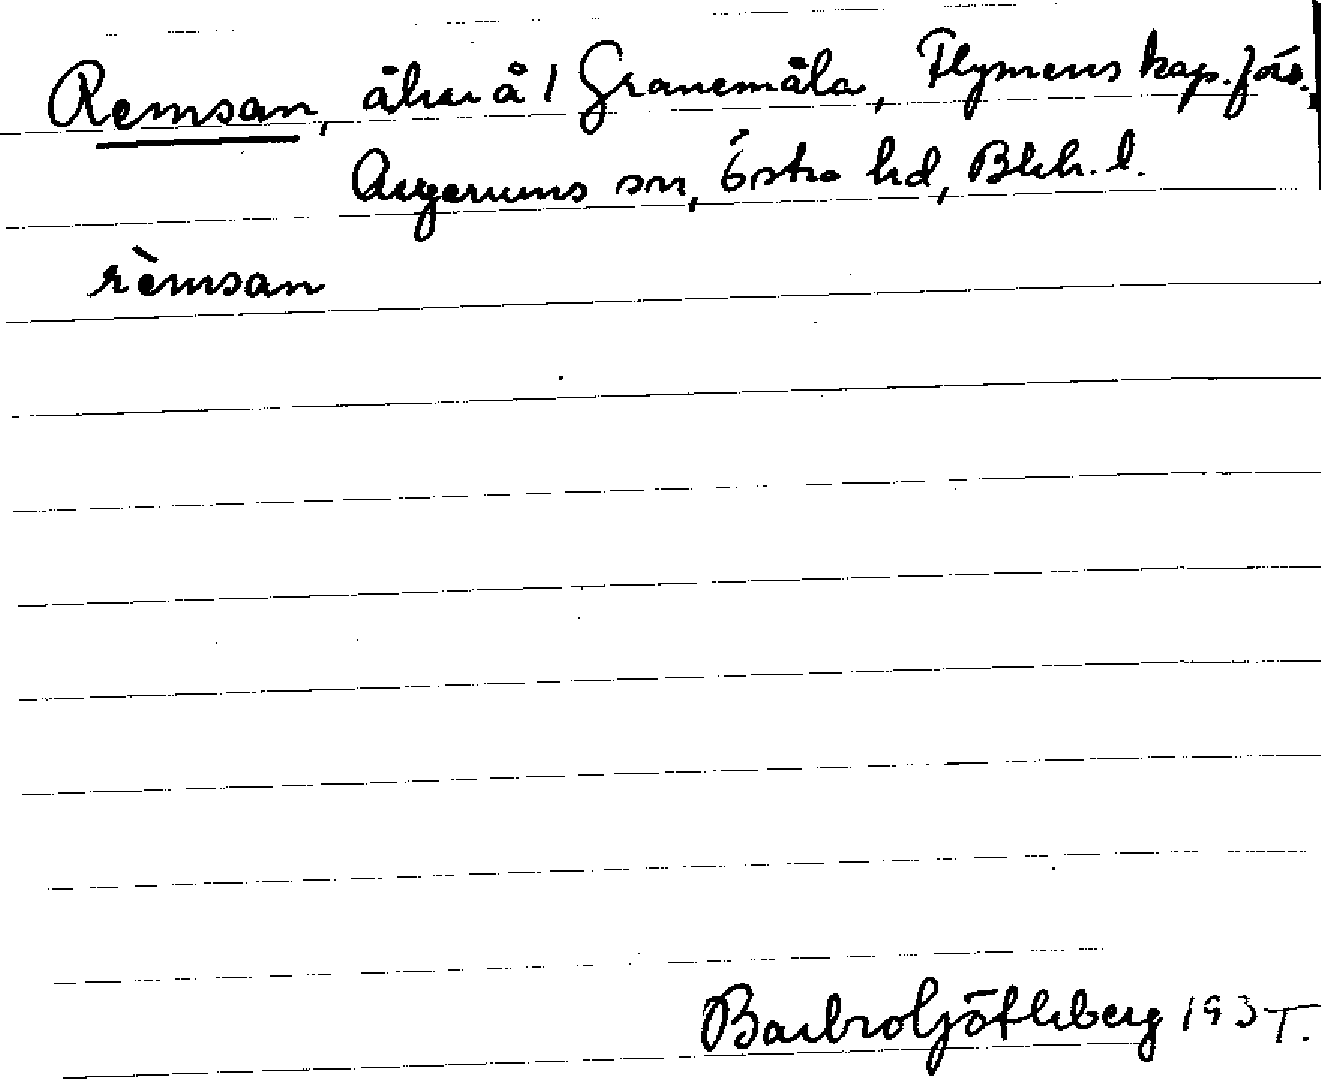 Remsan, åker å 1 Granemåla, Flymens kap.förs.
Augerums sn, Östra hd, Blek. l.
rèmsan
Barbro Götheberg 193